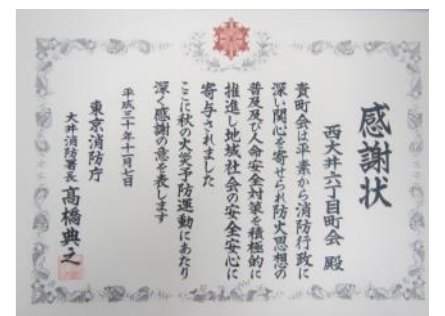 感謝状
西大井六丁目町会 殿
貴町会は平素から消防行政に
深い関心を寄せられ防火思想の
普及及び人命安全対策を積極的に
推進し地域社会の安全安心に
寄与されました
ここに秋の火災予防運動にあたり
深く感謝の意を表します
平成三十年十一月七日
東京消防庁
大井消防署長 高橋典之